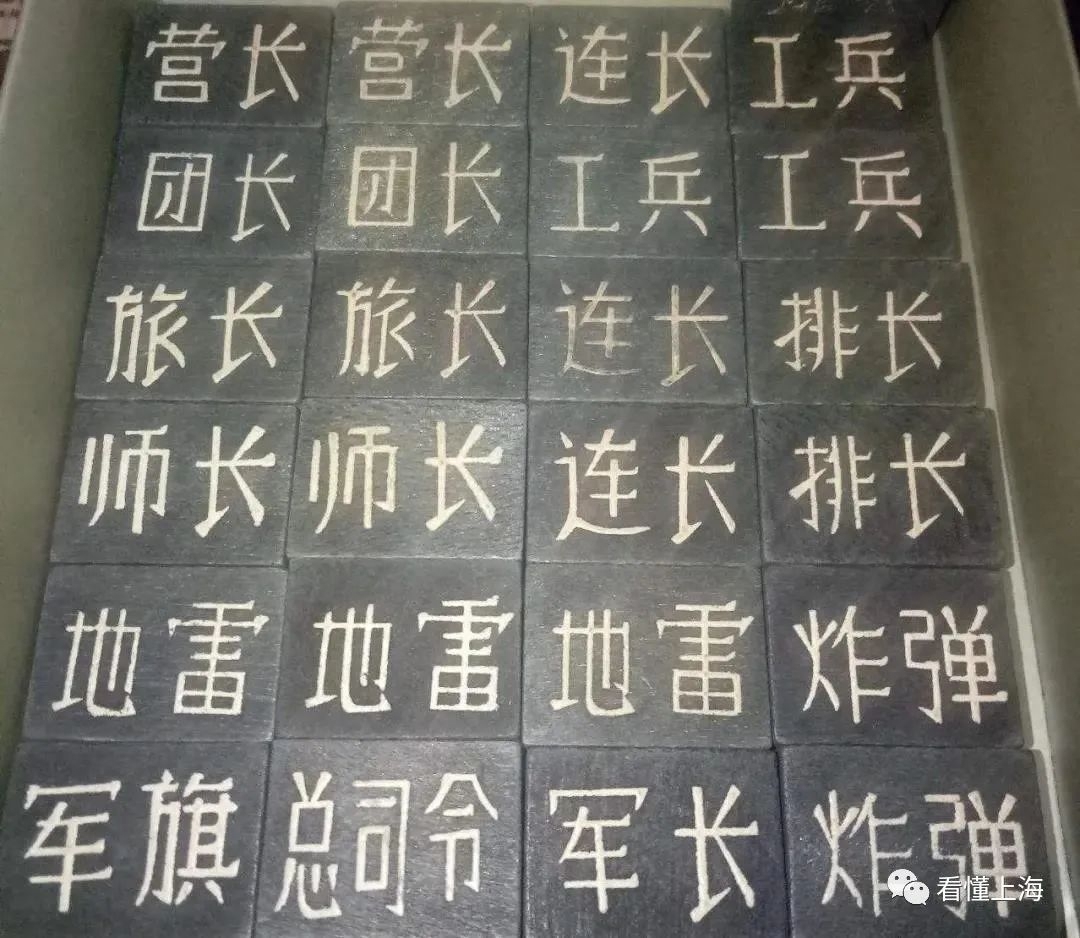 营长 营长 连长 工兵
团长 团长 工兵 工兵
旅长 旅长 连长 排长
师长 师长 连长 排长
地雷 地雷 地雷 炸弹
军旗 总司令 军长 炸弹
看懂上海